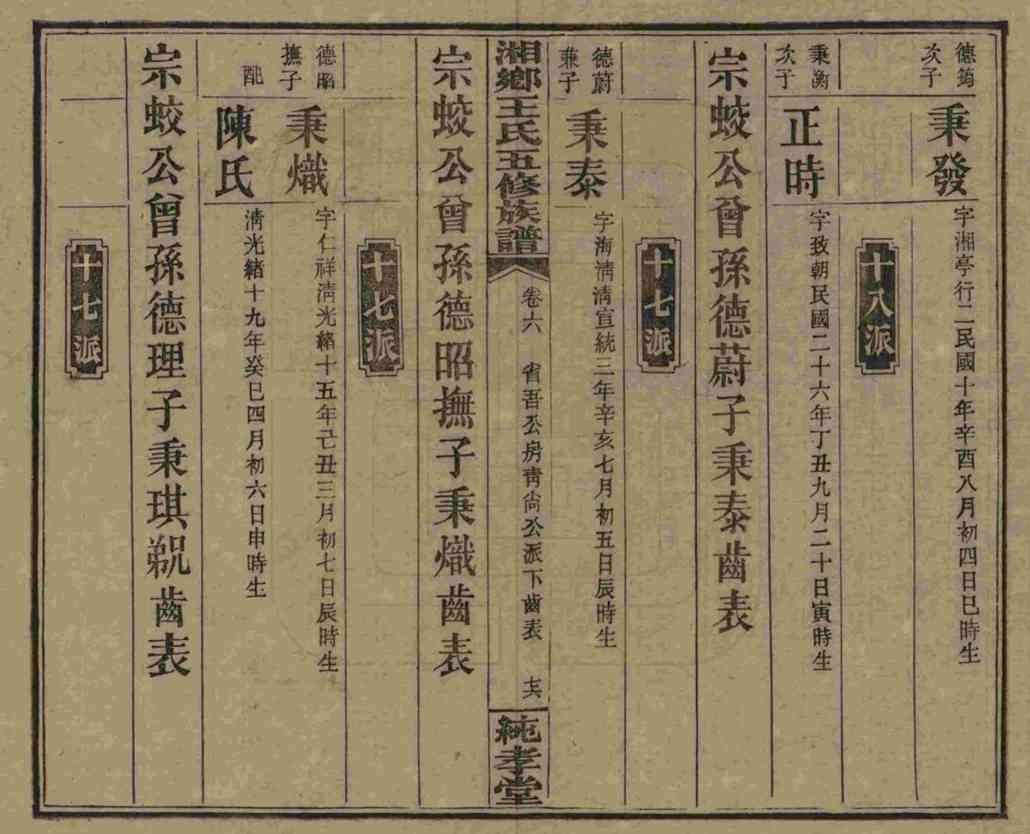 德筠
次子
秉發
字湘亭行二民國十年辛酉八月初四日巳時生
十八派
秉衡
次子
正時
字致朝民國二十六年丁丑九月二十日寅時生
宗蛟公曾孫德蔚子秉泰齒表
十七派
德蔚
兼子
秉泰
字海清清宣統三年辛亥七月初五日辰時生
湘鄉王氏五修族譜
卷六 省吾公房靑尙公派下齒表
純孝堂
宗蛟公曾孫德昭撫子秉熾齒表
十七派
德昭
撫子
秉熾
字仁祥清光緒十五年己丑三月初七日辰時生
配
陳氏
清光緒十九年癸巳四月初六日申時生
宗蛟公曾孫德理子秉琪祝齒表
十七派